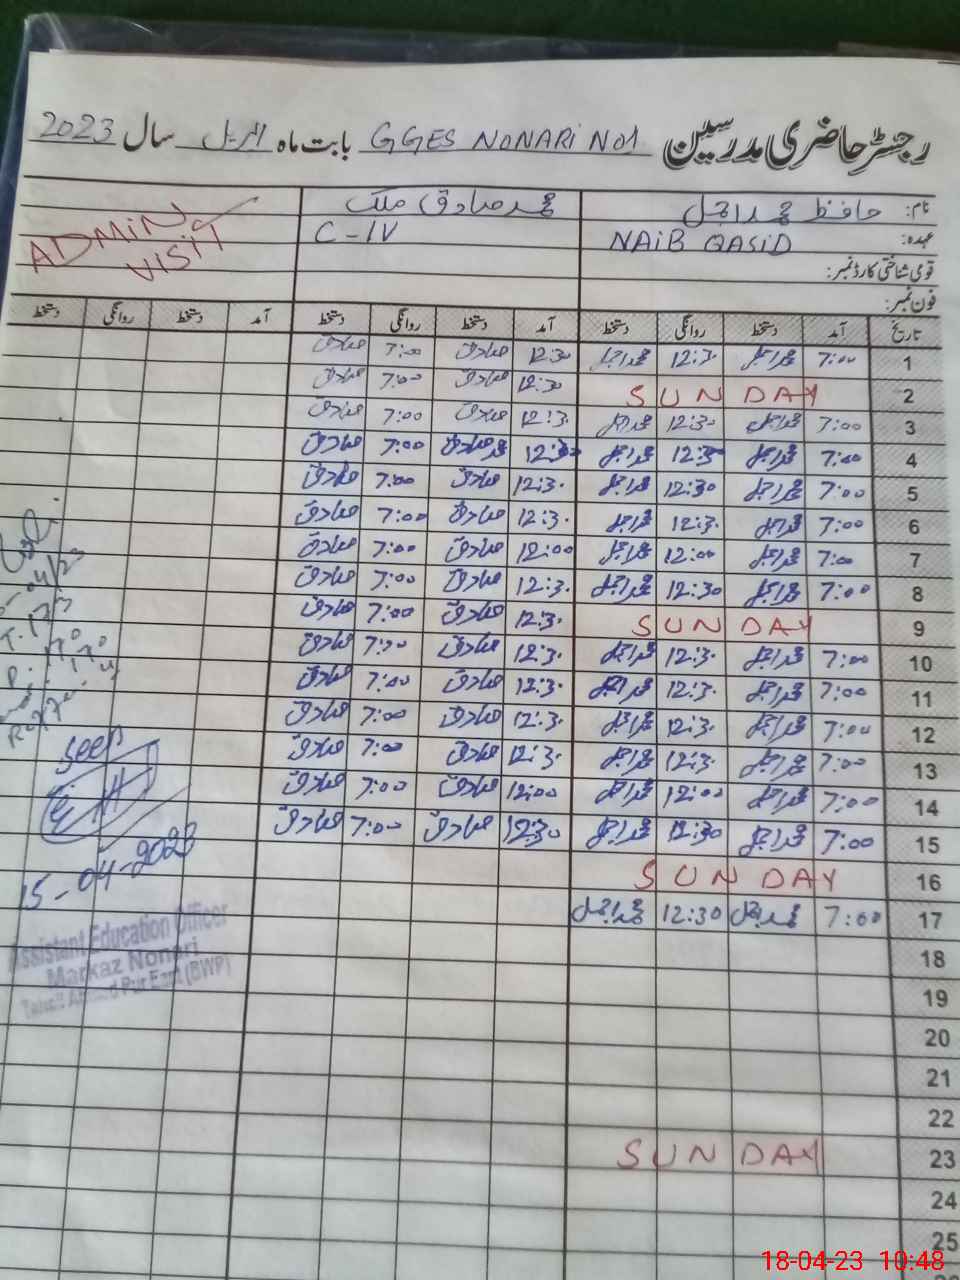 رجسٹر حاضری مدرسین GGES NONARI NO1 بابت ماہ اپریل سال 2023
نام: حافظ محمد اجمل محمد صادق ملک
عہدہ: NAIB QASID C-IV
ADMIN VISIT
قومی شناختی کارڈ نمبر:
فون نمبر:
تاریخ آمد دستخط روانگی دستخط آمد دستخط روانگی دستخط آمد دستخط روانگی دستخط
1 7:00 محمد اجمل 12:30 محمد اجمل 12:30 صادق 7:00 صادق
2 SUNDAY 12:30 صادق 7:00 صادق
3 7:00 محمد اجمل 12:30 محمد اجمل 12:30 صادق 7:00 صادق
4 7:00 محمد اجمل 12:30 محمد اجمل 12:30 محمد صادق 7:00 صادق
5 7:00 محمد اجمل 12:30 محمد اجمل 12:30 صادق 7:00 صادق
6 7:00 محمد اجمل 12:30 محمد اجمل 12:30 صادق 7:00 صادق
7 7:00 محمد اجمل 12:00 محمد اجمل 12:00 صادق 7:00 صادق
8 7:00 محمد اجمل 12:30 محمد اجمل 12:30 صادق 7:00 صادق
9 SUNDAY 12:30 صادق 7:00 صادق
10 7:00 محمد اجمل 12:30 محمد اجمل 12:30 صادق 7:00 صادق
11 7:00 محمد اجمل 12:30 محمد اجمل 12:30 صادق 7:00 صادق
12 7:00 محمد اجمل 12:30 محمد اجمل 12:30 صادق 7:00 صادق
13 7:00 محمد اجمل 12:30 محمد اجمل 12:30 صادق 7:00 صادق
14 7:00 محمد اجمل 12:00 محمد اجمل 12:00 صادق 7:00 صادق
15 7:00 محمد اجمل 12:30 محمد اجمل 12:30 صادق 7:00 صادق
16 SUNDAY
17 7:00 محمد اجمل 12:30 محمد اجمل
18
19
20
21
22
23 SUNDAY
24
25
Seen
15-04-2023
Assistant Education Officer
Markaz Nonari
Tehsil Ahmad Pur East (BWP)
18-04-23 10:48